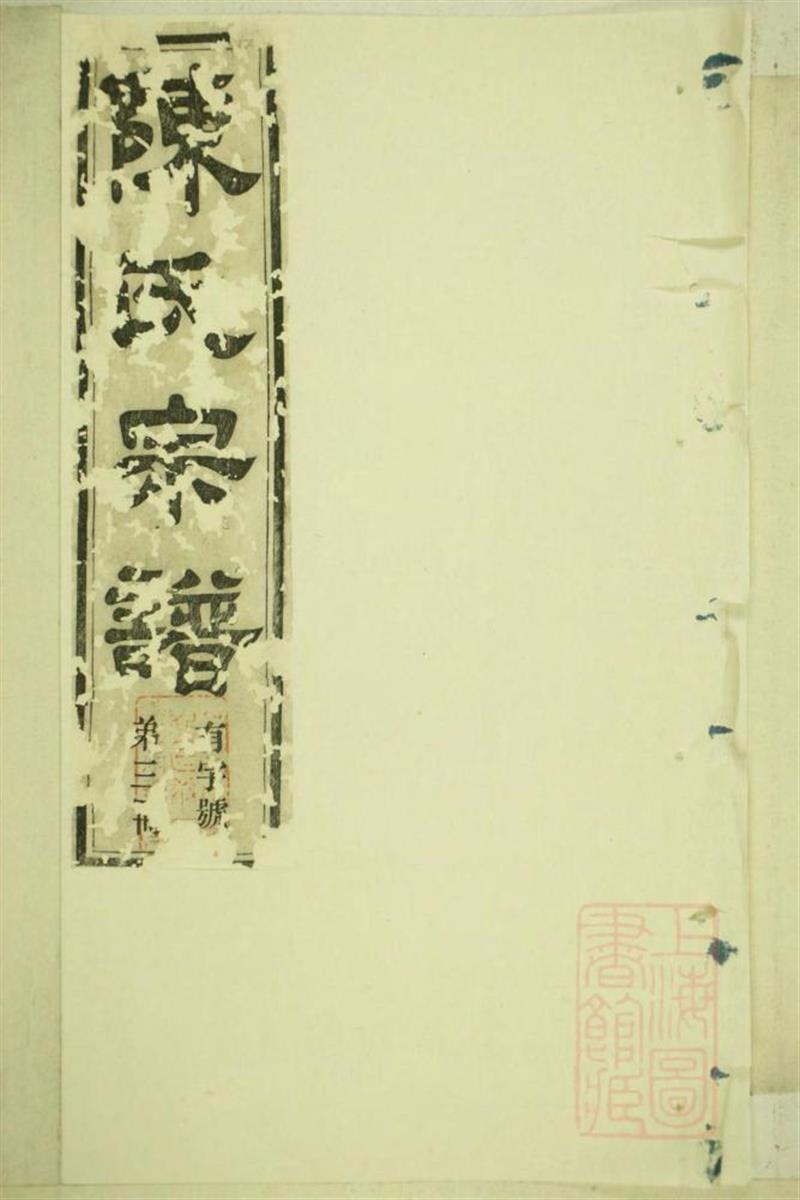 陳氏宗譜
有字號
第三
上海圖
書館藏